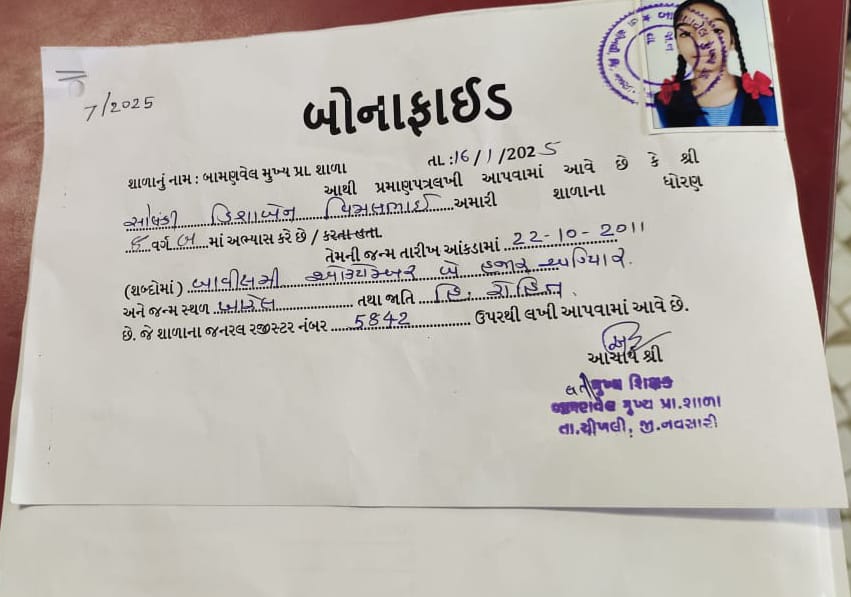 7/2025
બોનાફાઈડ
શાળાનું નામ : બામણવેલ મુખ્ય પ્રા. શાળા
તા. :16/1/2025
આથી પ્રમાણપત્રલખી આપવામાં આવે છે કે શ્રી
સોલંકી દિશાબેન વિમલભાઈ અમારી શાળાના ધોરણ
વર્ગ બ માં અભ્યાસ કરે છે / કરતા હતા.
તેમની જન્મ તારીખ આંકડામાં 22-10-2011
(શબ્દોમાં) બાવીસમી ઓક્ટોમ્બર બે હજાર અગિયાર.
અને જન્મ સ્થળ તથા જાતિ હિ.
છે. જે શાળાના જનરલ રજીસ્ટર નંબર 5842 ઉપરથી લખી આપવામાં આવે છે.
આચાર્ય શ્રી
મુખ્ય શિક્ષક
બામણવેલ મુખ્ય પ્રા.શાળા
તા.ચીખલી, જી.નવસારી